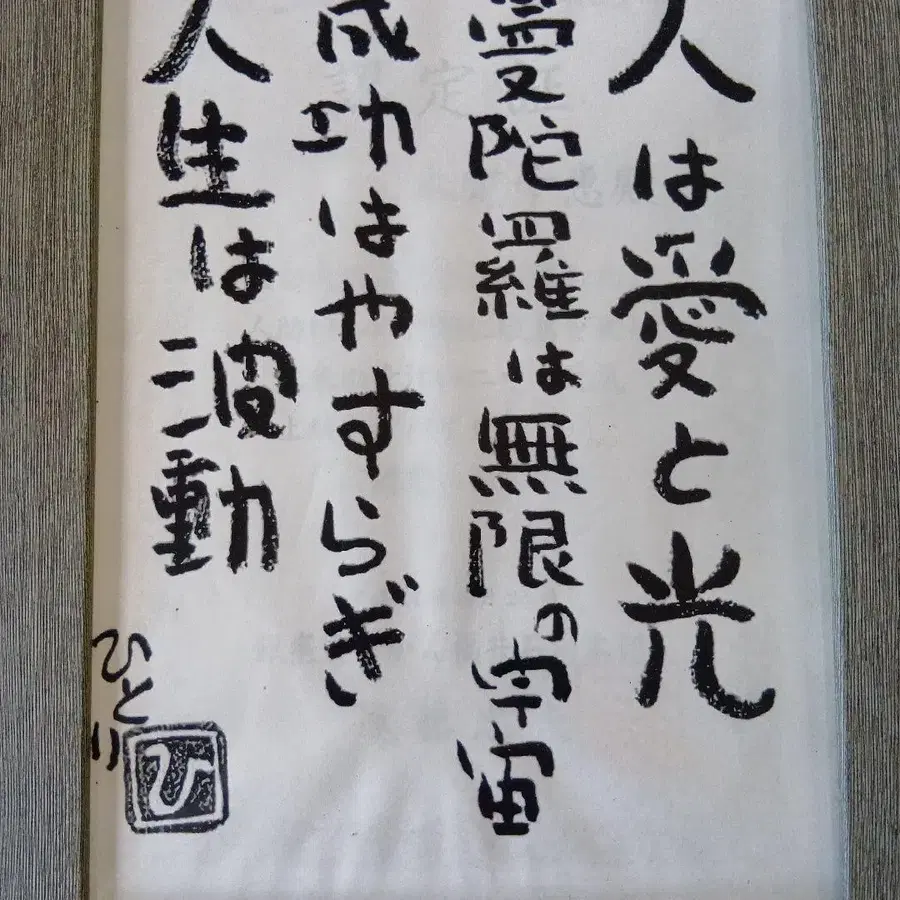 人は愛と光
曼陀羅は無限の宇宙
成功はやすらぎ
人生は波動
ひとり
ひ